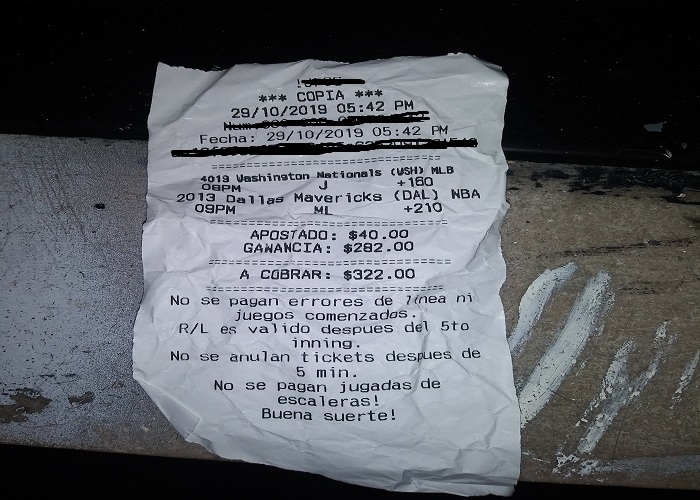 *** COPIA ***
29/10/2019 05:42 PM
Fecha: 29/10/2019 05:42 PM
4019 Washington Nationals (WSH) MLB
08PM J +160
2013 Dallas Mavericks (DAL) NBA
09PM ML +210
APOSTADO: $40.00
GANANCIA: $282.00
A COBRAR: $322.00
No se pagan errores de linea ni
juegos comenzados.
R/L es valido despues del 5to
inning.
No se anulan tickets despues de
5 min.
No se pagan jugadas de
escaleras!
Buena suerte!